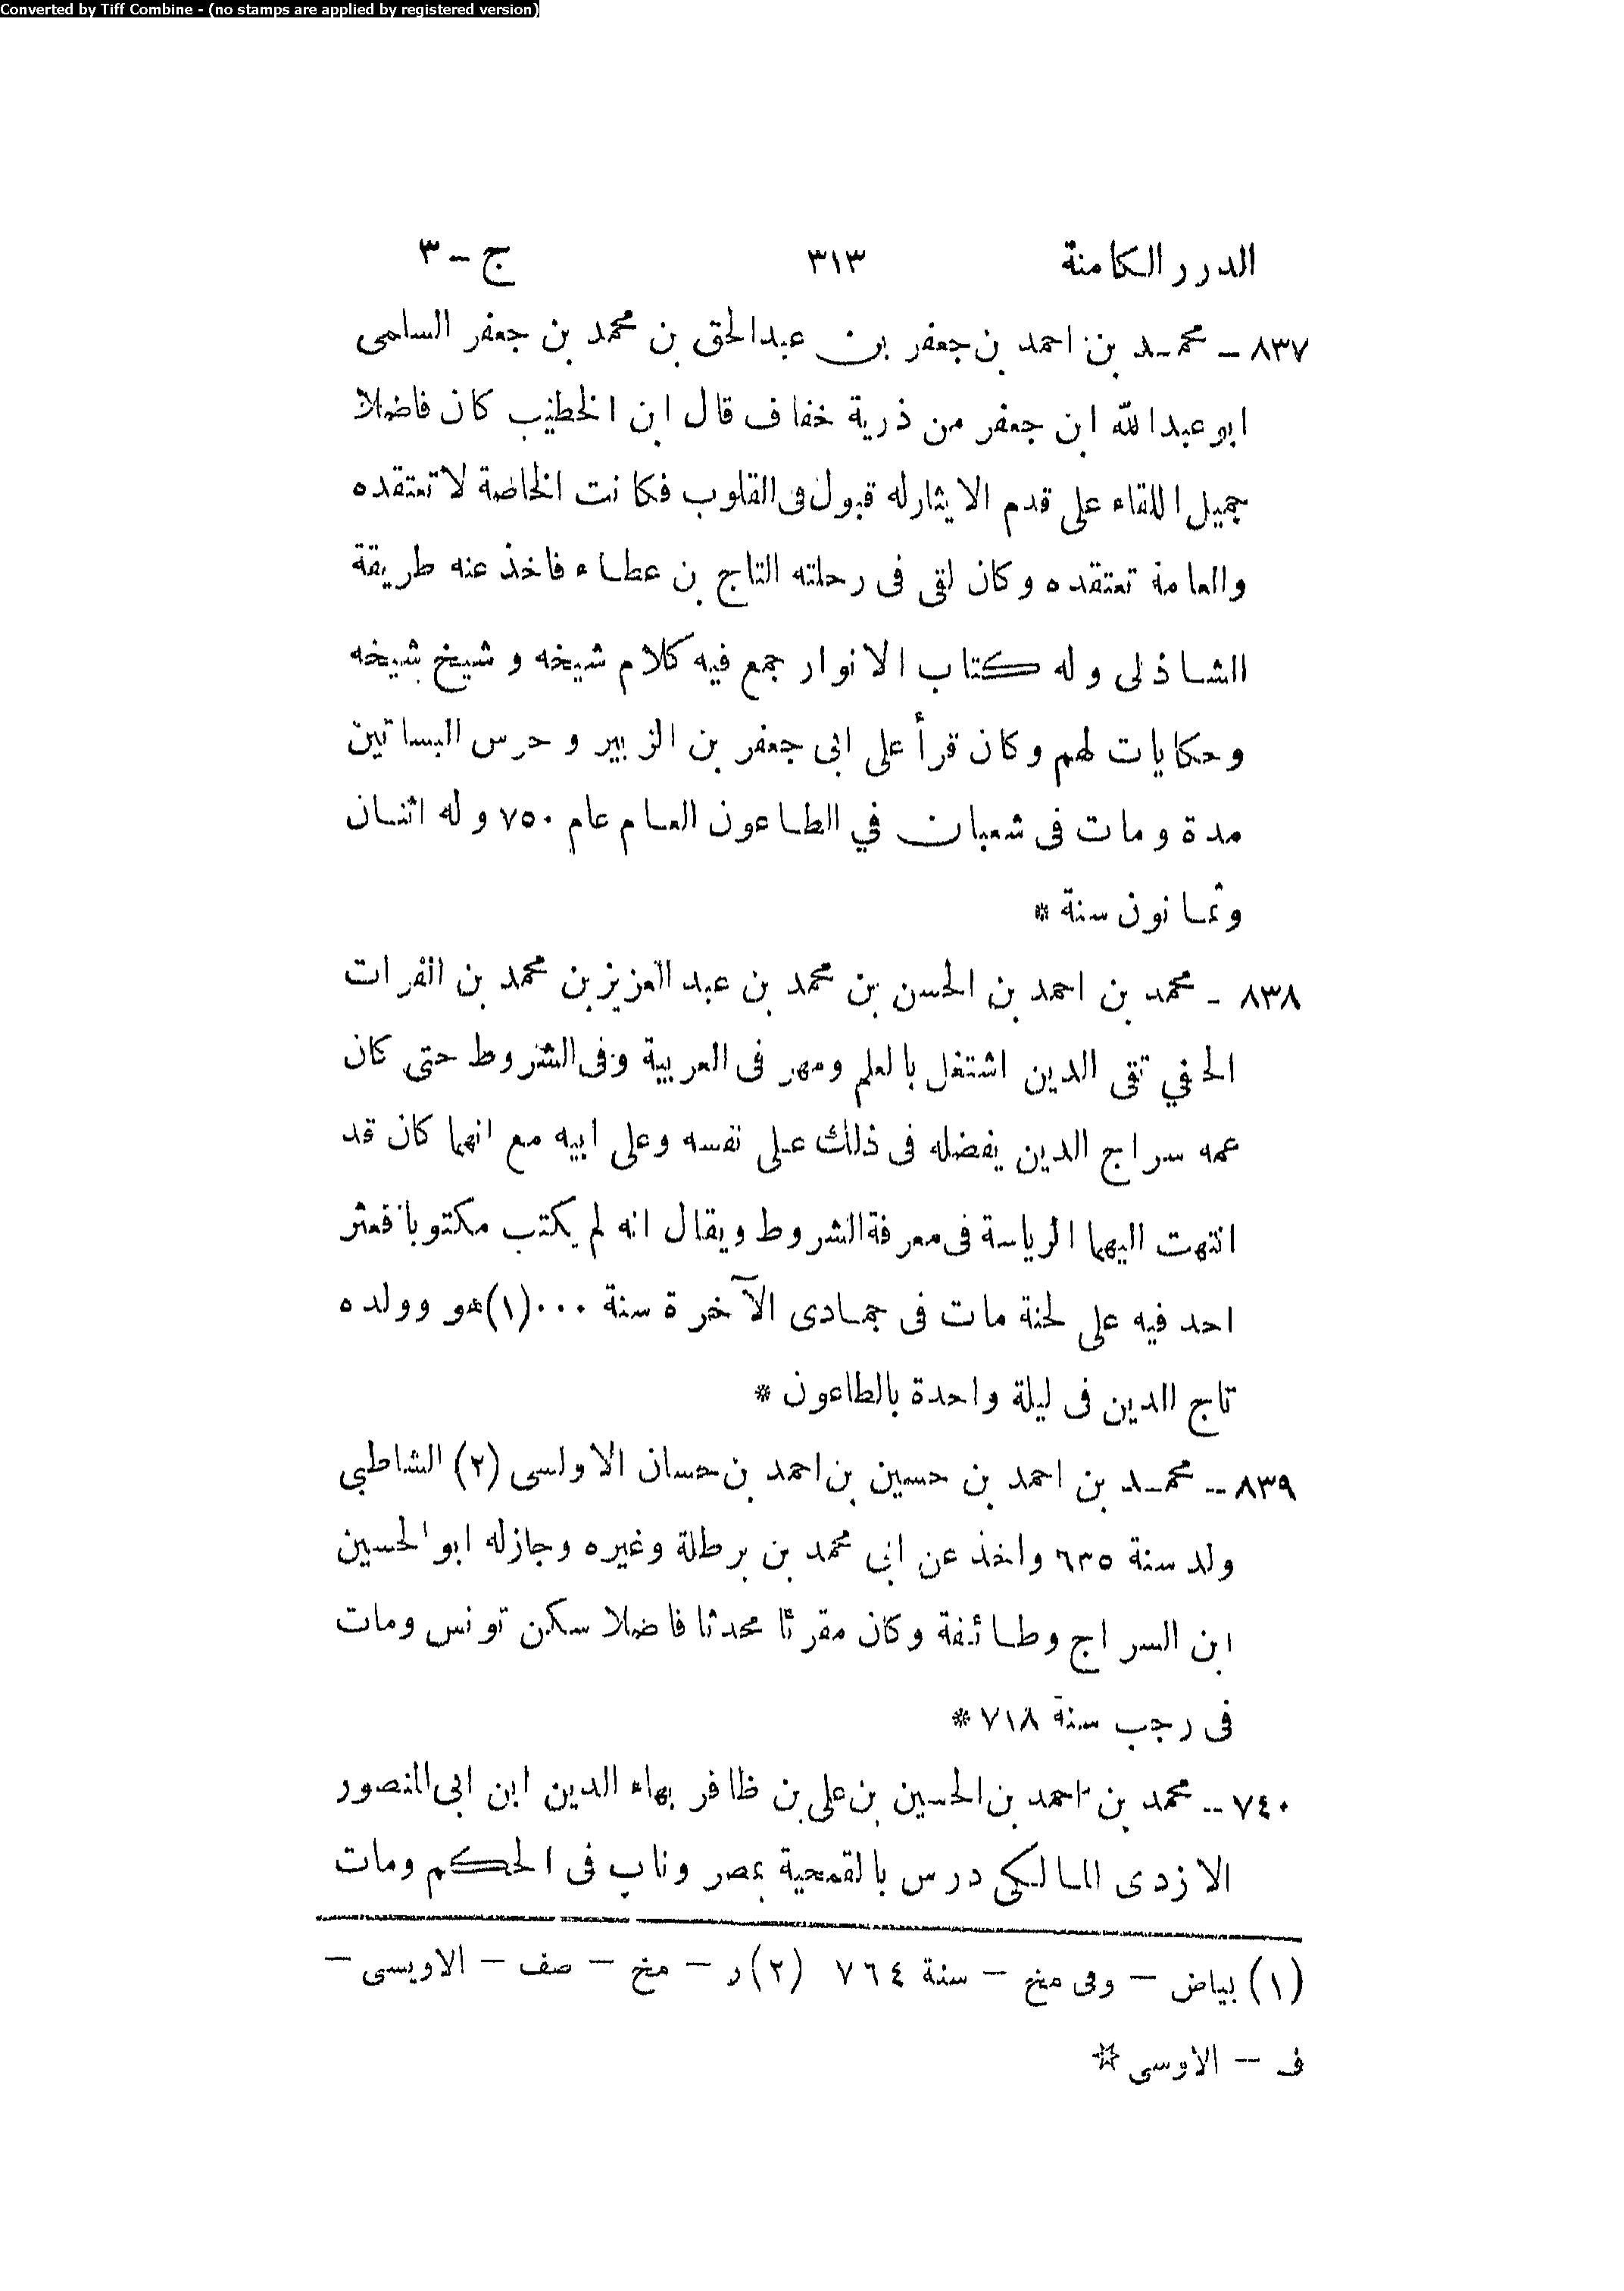 Converted by Tiff Combine - (no stamps are applied by registered version)
الدرر الكامنة ٣١٣ ج - ٣
٨٣٧ - محمد بن احمد بن جعفر بن عبدالحق بن محمد بن جعفر السلمى
ابو عبدالله ابن جعفر من ذرية خفاف قال ابن الخطيب كان فاضلا
جميل اللقاء على قدم الايثار له قبول فى القلوب فكانت الخاصة لا تعتقده
والعامة تعتقده وكان لقى فى رحلته التاج بن عطاء فاخذ عنه طريقة
الشاذلى وله كتاب الانوار جمع فيه كلام شيخه وشيخ شيخه
وحكايات لهم وكان قرأ على ابى جعفر بن الزبير وحرس البساتين
مدة ومات فى شعبان في الطاعون العام عام ٧٥٠ وله اثنان
وثمانون سنة *
٨٣٨ - محمد بن احمد بن الحسن بن محمد بن عبد العزيز بن محمد بن الفرات
الحفي تقى الدين اشتغل بالعلم ومهر فى العربية وفى الشروط حتى كان
عمه سراج الدين يفضله فى ذلك على نفسه وعلى ابيه مع انهما كان قد
انتهت اليهما الرياسة فى معرفة الشروط ويقال انه لم يكتب مكتوبا فعثر
احد فيه على لحنة مات فى جمادى الآخرة سنة ٠٠٠ (١) هو وولده
تاج الدين فى ليلة واحدة بالطاعون *
٨٣٩ - محمد بن احمد بن حسين بن احمد بن حسان الاولسى (٢) الشاطبي
ولد سنة ٦٣٥ واخذ عن ابى محمد بن برطلة وغيره وجازله ابو الحسين
ابن السراج وطائفة وكان مقرئا محدثا فاضلا سكن تونس ومات
فى رجب سنة ٧١٨ *
٧٤٠ - محمد بن احمد بن الحسين بن على بن ظافر بهاء الدين ابن ابى المنصور
الازدى المالكى درس بالقمحية بمصر وناب فى الحكم ومات
(١) بياض - وفى مخ - سنة ٧٦٤ (٢) ر - مخ - صف - الاويسى -
ف - الاوسى *